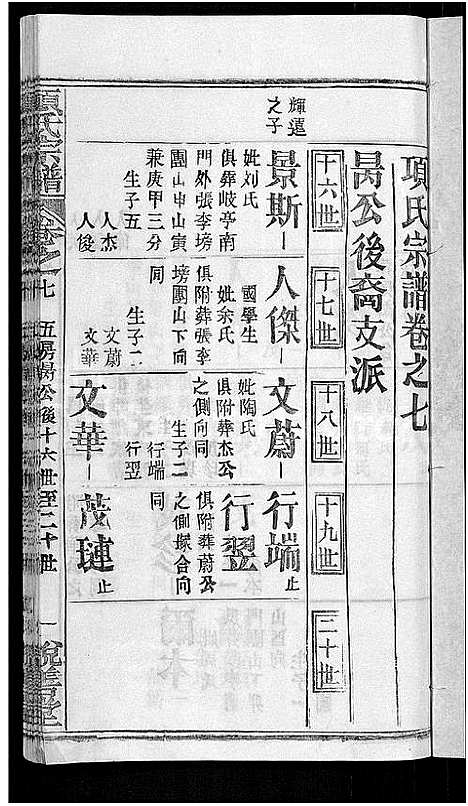 項氏宗譜卷之七
昺公後裔支派
十六世
十七世
十八世
十九世
二十世
輝遠
之子
景斯
妣刘氏
俱葬岐亭南
門外張李塝
團山申山寅
兼庚甲三分
生子五
人杰
人後
人傑
國學生
妣余氏
俱附葬張李
塝團山下向
同
生子二
文蔚
文華
文蔚
妣陶氏
俱附葬杰公
之側向同
生子二
行端
行翌
行端
止
行翌
俱附葬蔚公
之側據合向
同
文華
茂璉
止
項氏宗譜
卷之七
五房昺公後十六世至二十世
一